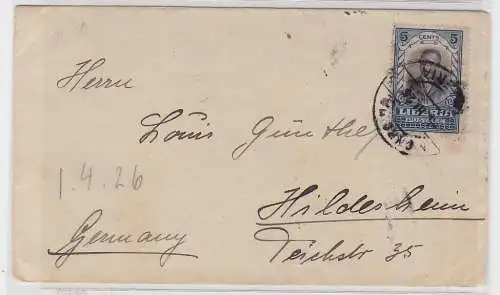 5 CENTS 5
LIBERIA
Herrn
Louis Günther
1.4.26
Hildesheim
Germany
Teichstr 35